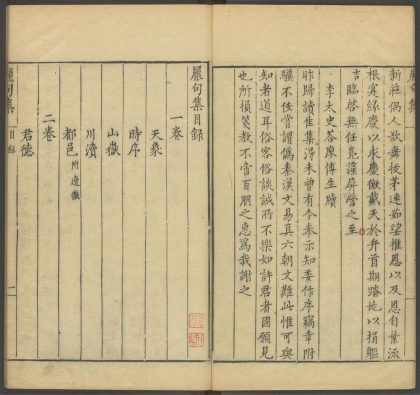 新莊偶人歆舞拔茅連如望推恩以及恩自葉流
根寅緣慶以求慶徽戴天於弁首期踏地以捐軀
臨啓無任鳧藻屏營之至
李太史答廖傅生牘
昨歸讀佳集得未曾有今奉示知委作序竊幸附
驥不佞嘗謂偽秦漢文易真六朝文難此惟可與
知者道耳俗客俗談誠所不樂如許君者固願見
也所損笑教不啻百朋之惠為我謝之
麗句集目錄
一卷
天象
時序
山嶽
川瀆
都邑 附邊徼
二卷
君德
麗句集
目錄
二